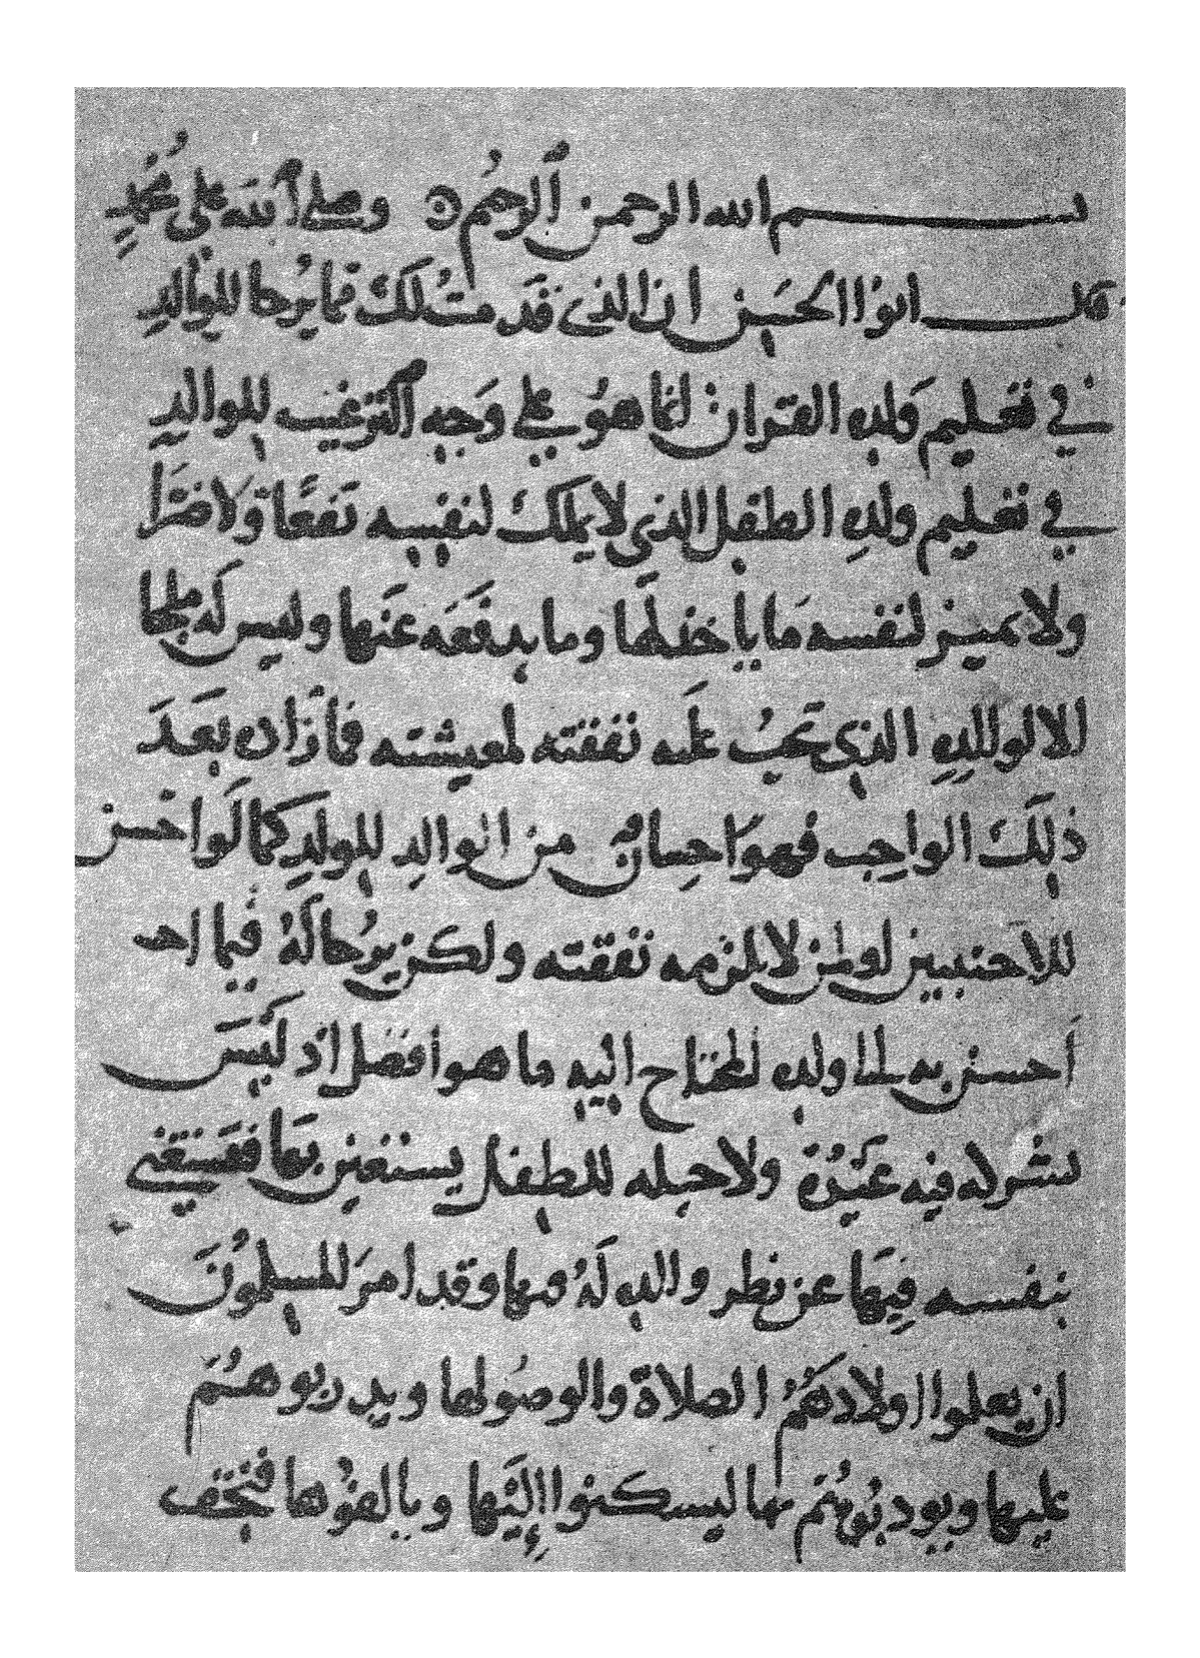 بسم الله الرحمن الرحيم وصلى الله على محمد
قال ابوا الحسن ان الذي قدمت لك مما يرجا للوالد
في تعليم ولده القران انما هو على وجه الترغيب للوالد
في تعليم ولده الطفل الذي لا يملك لنفسه نفعا ولا ضرا
ولا يميز لنفسه ما ياخذ لها وما يدفعه عنها وليس له ملجا
الا لوالده الذي تجب عليه نفقته لمعيشته فما زاده بعد
ذلك الواجب فهو احسان من الوالد للولد كما لو احسن
للاجنبيين او لمن لا يلزمه نفقته ولكن يرجا له فيما
احسن به لما ولده المحتاج اليه ما هو افضل اذ ليس
يشركه فيه غيره ولا حيله للطفل يستعين بها فيستغني
بنفسه فيها عن نظر والده له فيها وقد امر المسلمون
ان يعلموا اولادهم الصلاة والوضو لها ويدربوهم
عليها ويودبوهم بها ليسكنوا اليها ويالفوها فتخف